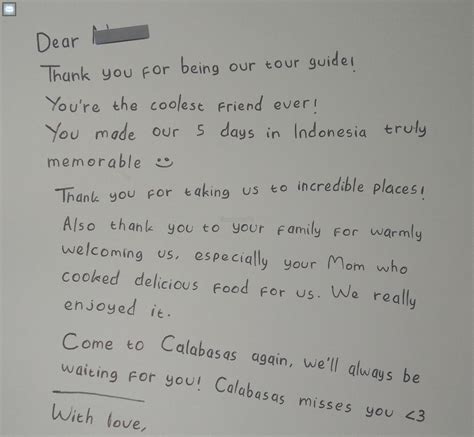 Dear
Thank you for being our tour guide!
You're the coolest friend ever!
You made our 5 days in Indonesia truly
memorable :)
Thank you for taking us to incredible places!
Also thank you to your family for warmly
welcoming us, especially your Mom who
cooked delicious food for us. We really
enjoyed it.
Come to Calabasas again, we'll always be
waiting for you! Calabasas misses you <3
With love,